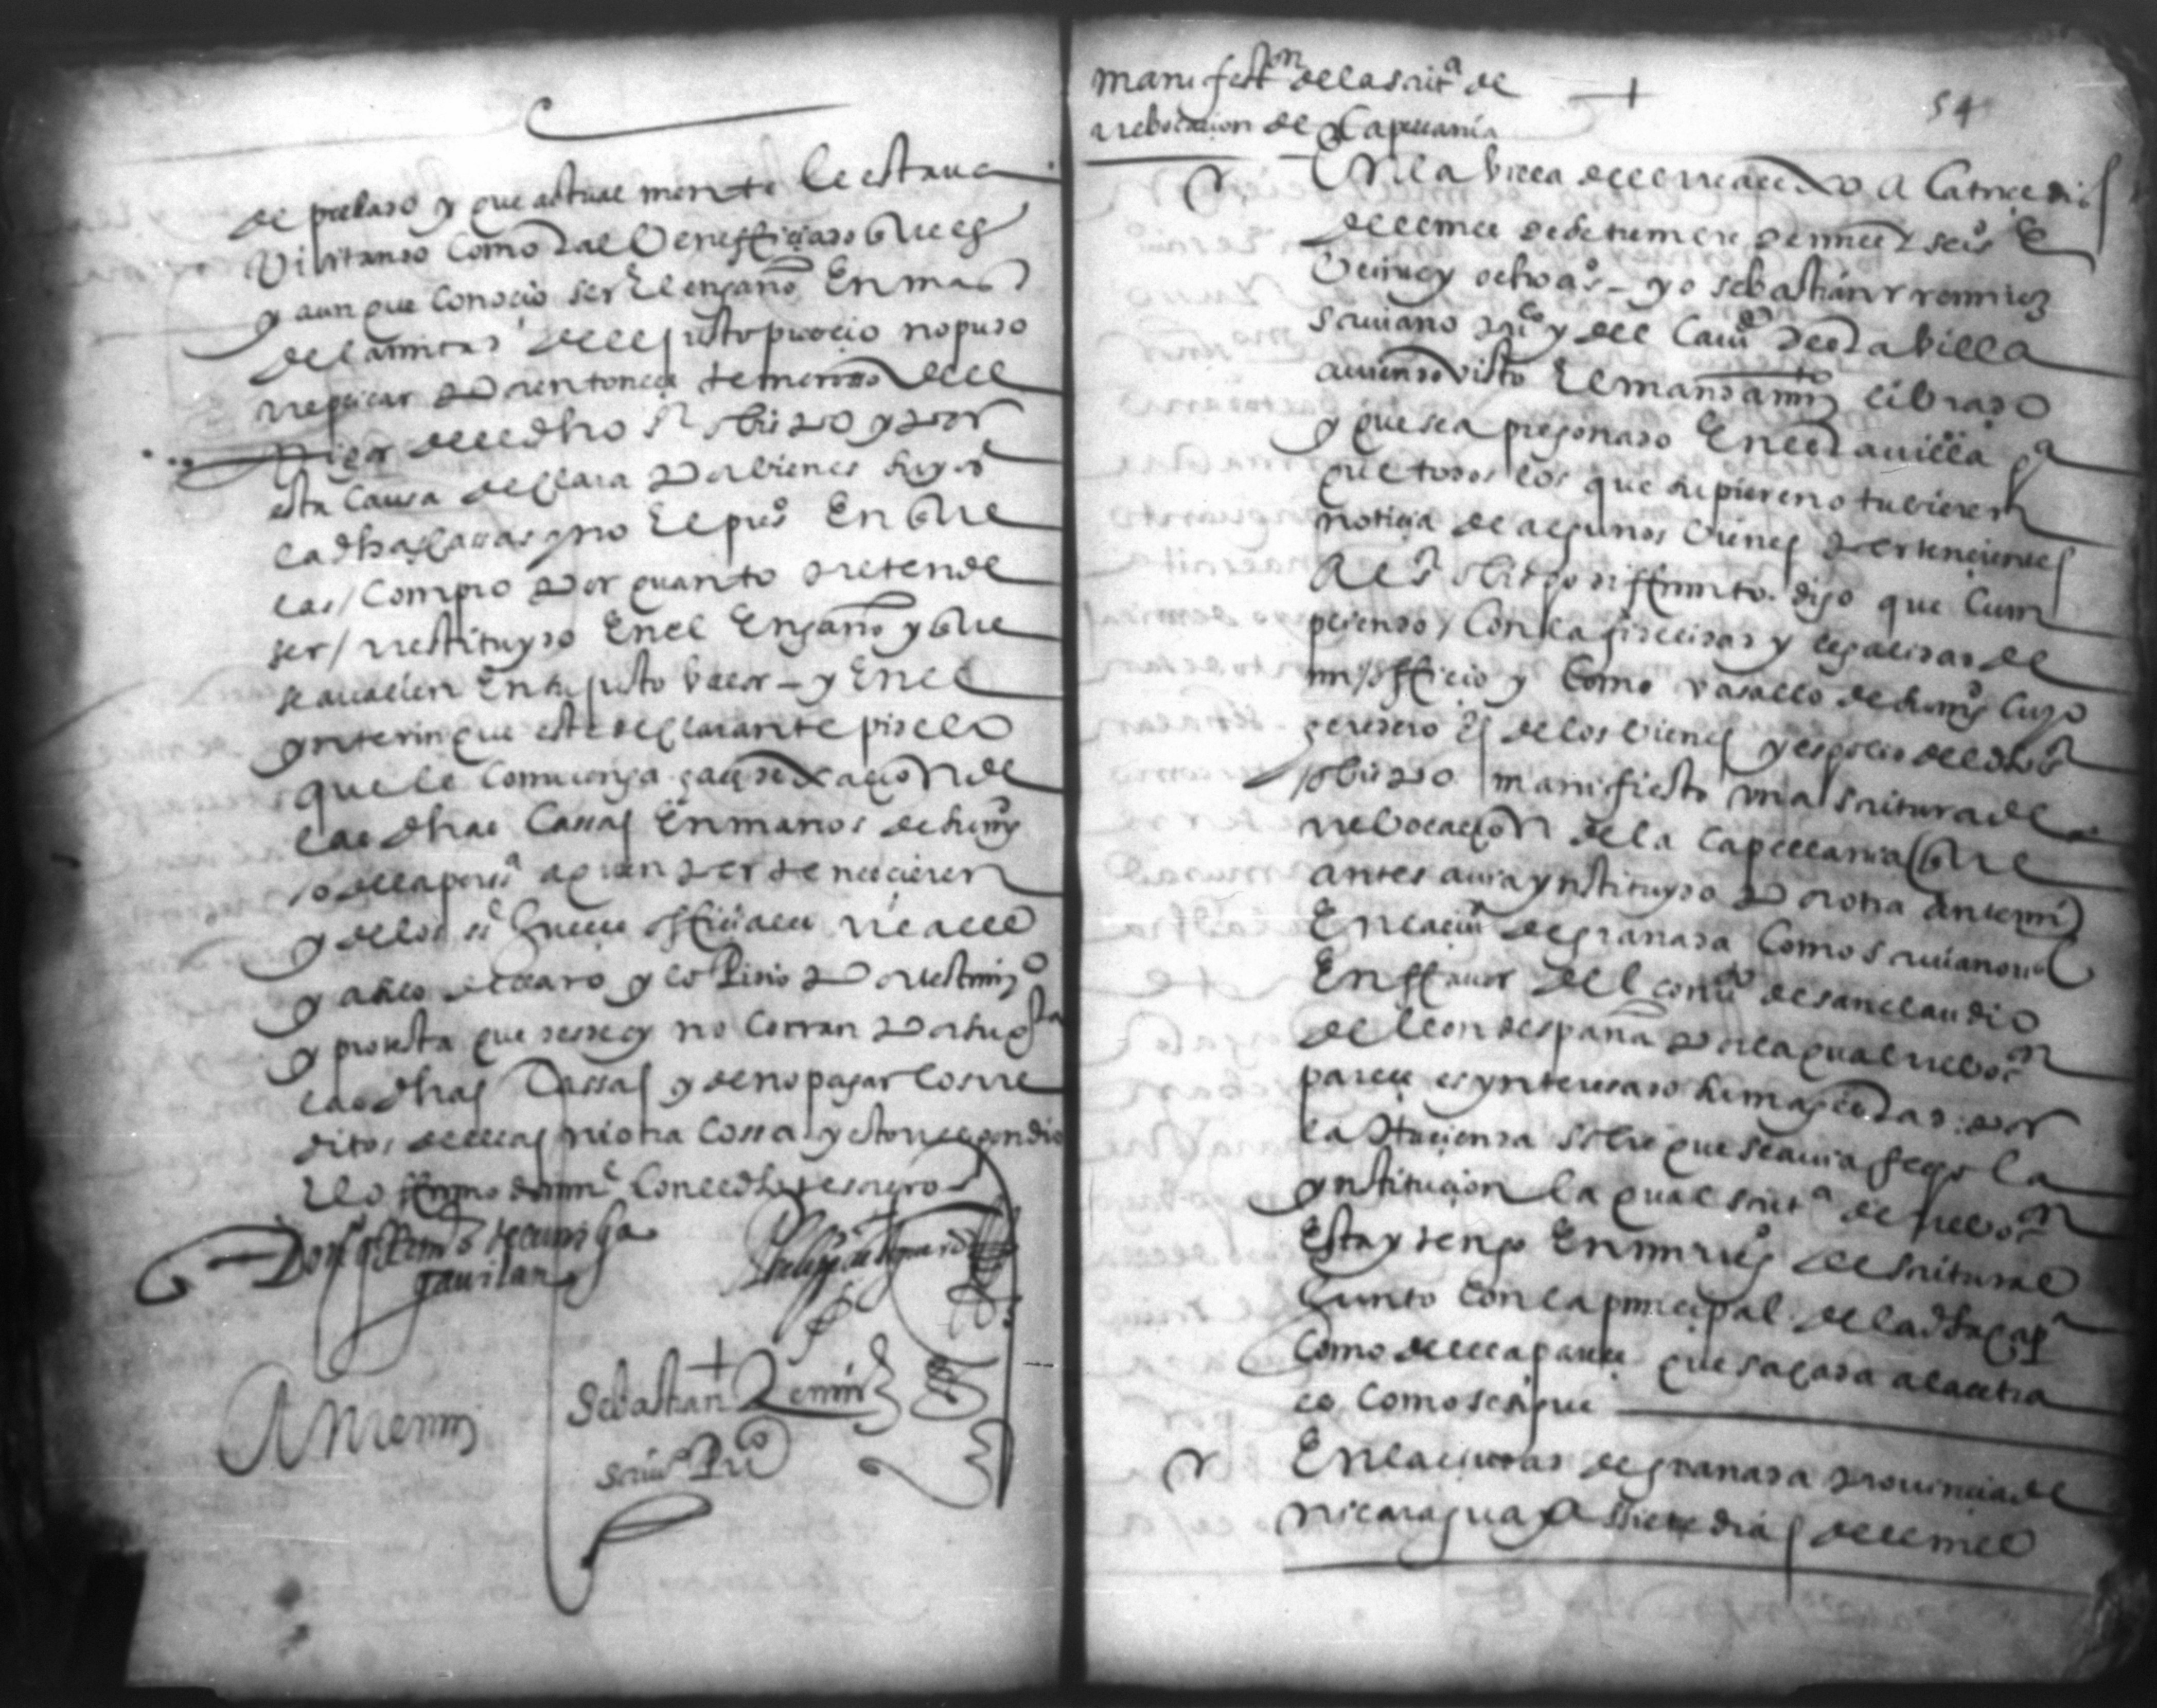 de prelado y que actual mente le estaua
Visitando Como a tal Veneffiçiado que es
y aun que Conoçio ser El engaño En mas
de la mitad del justo preçio no pudo
rreplicar por entonces temerosso del
rigor del dho sr obispo y por
esta Causa declara por bienes suyos
las dhas cassas y no El preçio En que
las Compro por quanto pretende
ser rrestituydo En el Engaño y que
se aualien En su justo balor - y En el
ynterin que este declarante pide lo
que le Comvenga haçe dexaçion de
las dhas Cassas En manos de su mgd
o de la persa a quien pertenecieren
y de los ss Jueces offiçiales rreales
y asi lo declaro y lo Pidio por testimo
y protesta que desde oy no Corran por su qta
las dhas Cassas y de no pagar los rre
ditos dellas ni otra Cossa y esto rrespondio
y lo firmo de su me Con el dho tesorero
Don
gauilan
Ante mi
Sebastian Remirez
scriuo Puco
manifeston de la scrita de
rrebocacion de Capellania
54
En la billa del rrealexo A Catorce dias
del mes de setiembre de mill y seiso e
Veinte y ocho as - yo sebastian rremirez
scriuano puco y del Cauo desta billa
auiendo visto El mandamio librado
y que sea pregonado En esta uilla pa
que todos los que supieren o tubieren
noticia de algunos bienes pertenecientes
Al sr obispo diffunto. digo que Cum
pliendo Con la fidelidad y legalidad de
mi officio y Como vasallo de su mgd Cuyo
heredero es de los bienes y espolio del dho sr
obispo manifiesto vna scritura de
rrebocaçion de la Capellania que
antes auia ynstituydo por otra ante mi
En la ciud de granada Como scriuano rreal
En ffauor del convto de san claudio
de leon despaña por la qual rreboon
parece es ynteresado su magestad por
la Hacienda sobre que se auia fecho la
ynstituçion la qual scrita de rreboon
Esta y tengo En mi rregro de scrituras
Junto Con la principal de la dha capa
Como della parece que sacada a la letra
es Como se sigue
En la ciudad de granada prouincia de
nicaragua A siete dias del mes